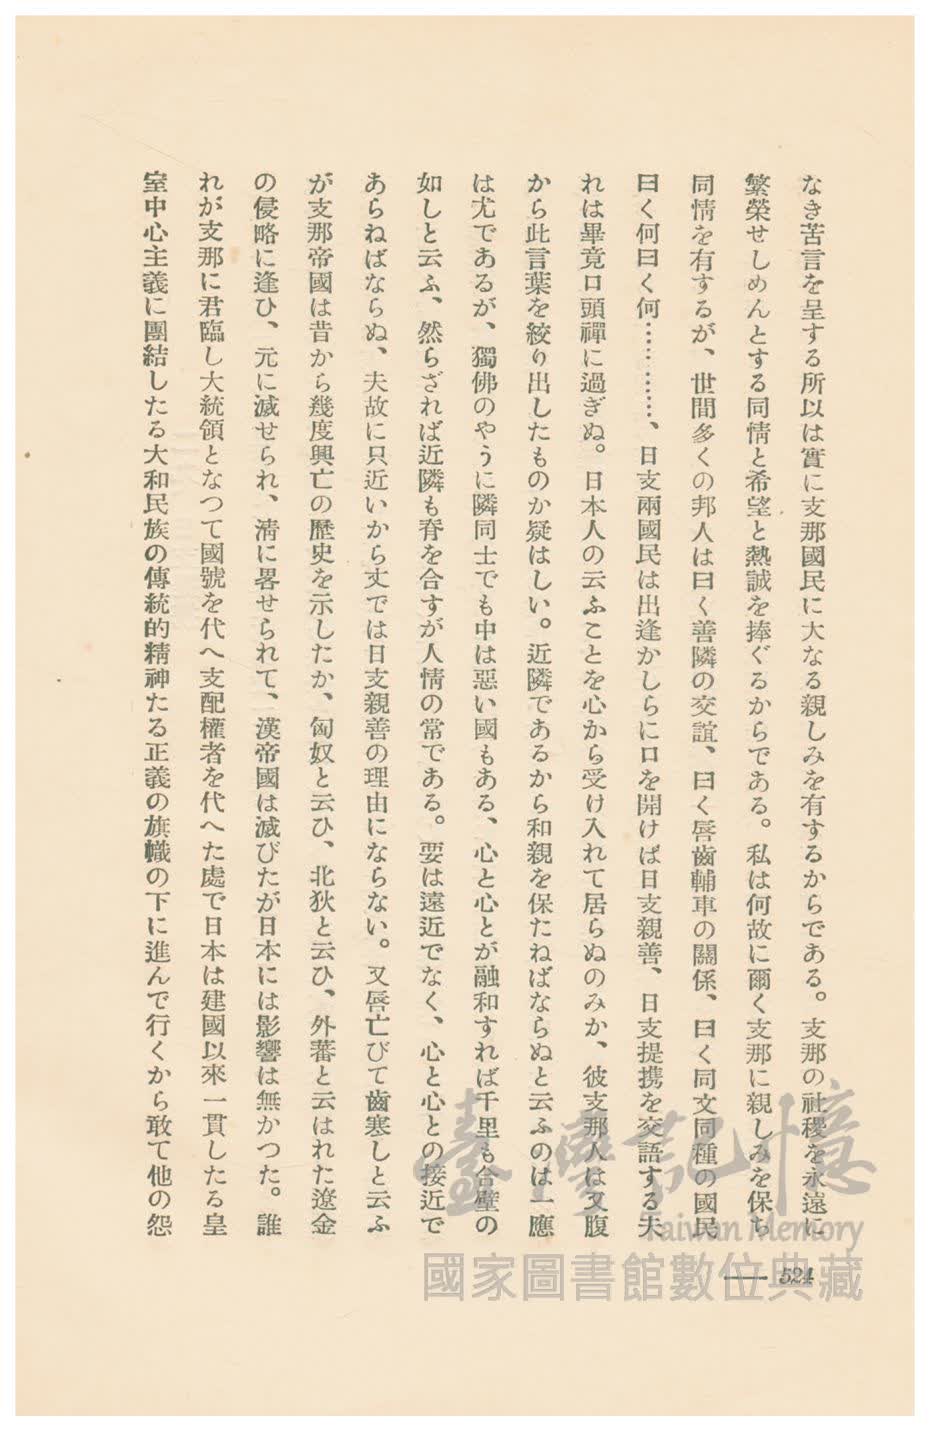 なき苦言を呈する所以は實に支那國民に大なる親しみを有するからである。支那の社稷を永遠に
繁榮せしめんとする同情と希望と熱誠を捧ぐるからである。私は何故に爾く支那に親しみを保ち
同情を有するが、世間多くの邦人は曰く善隣の交誼、曰く唇齒輔車の關係、曰く同文同種の國民
曰く何曰く何…………、日支兩國民は出逢かしらに口を開けば日支親善、日支提携を交語する夫
れは畢竟口頭禪に過ぎぬ。日本人の云ふことを心から受け入れて居らぬのみか、彼支那人は又腹
から此言葉を絞り出したものか疑はしい。近隣であるから和親を保たねばならぬと云ふのは一應
は尤であるが、獨佛のやうに隣同士でも中は惡い國もある、心と心とが融和すれば千里も合壁の
如しと云ふ、然らざれば近隣も脊を合すが人情の常である。要は遠近でなく、心と心との接近で
あらねばならぬ、夫故に只近いから丈では日支親善の理由にならない。又唇亡びて齒寒しと云ふ
が支那帝國は昔から幾度興亡の歷史を示したか、匈奴と云ひ、北狄と云ひ、外蕃と云はれた遼金
の侵略に逢ひ、元に滅せられ、淸に畧せられて、漢帝國は滅びたが日本には影響は無かつた。誰
れが支那に君臨し大統領となつて國號を代へ支配權者を代へた處で日本は建國以來一貫したる皇
室中心主義に團結したる大和民族の傳統的精神たる正義の旗幟の下に進んで行くから敢て他の怨
524
臺灣記憶
Taiwan Memory
國家圖書館數位典藏